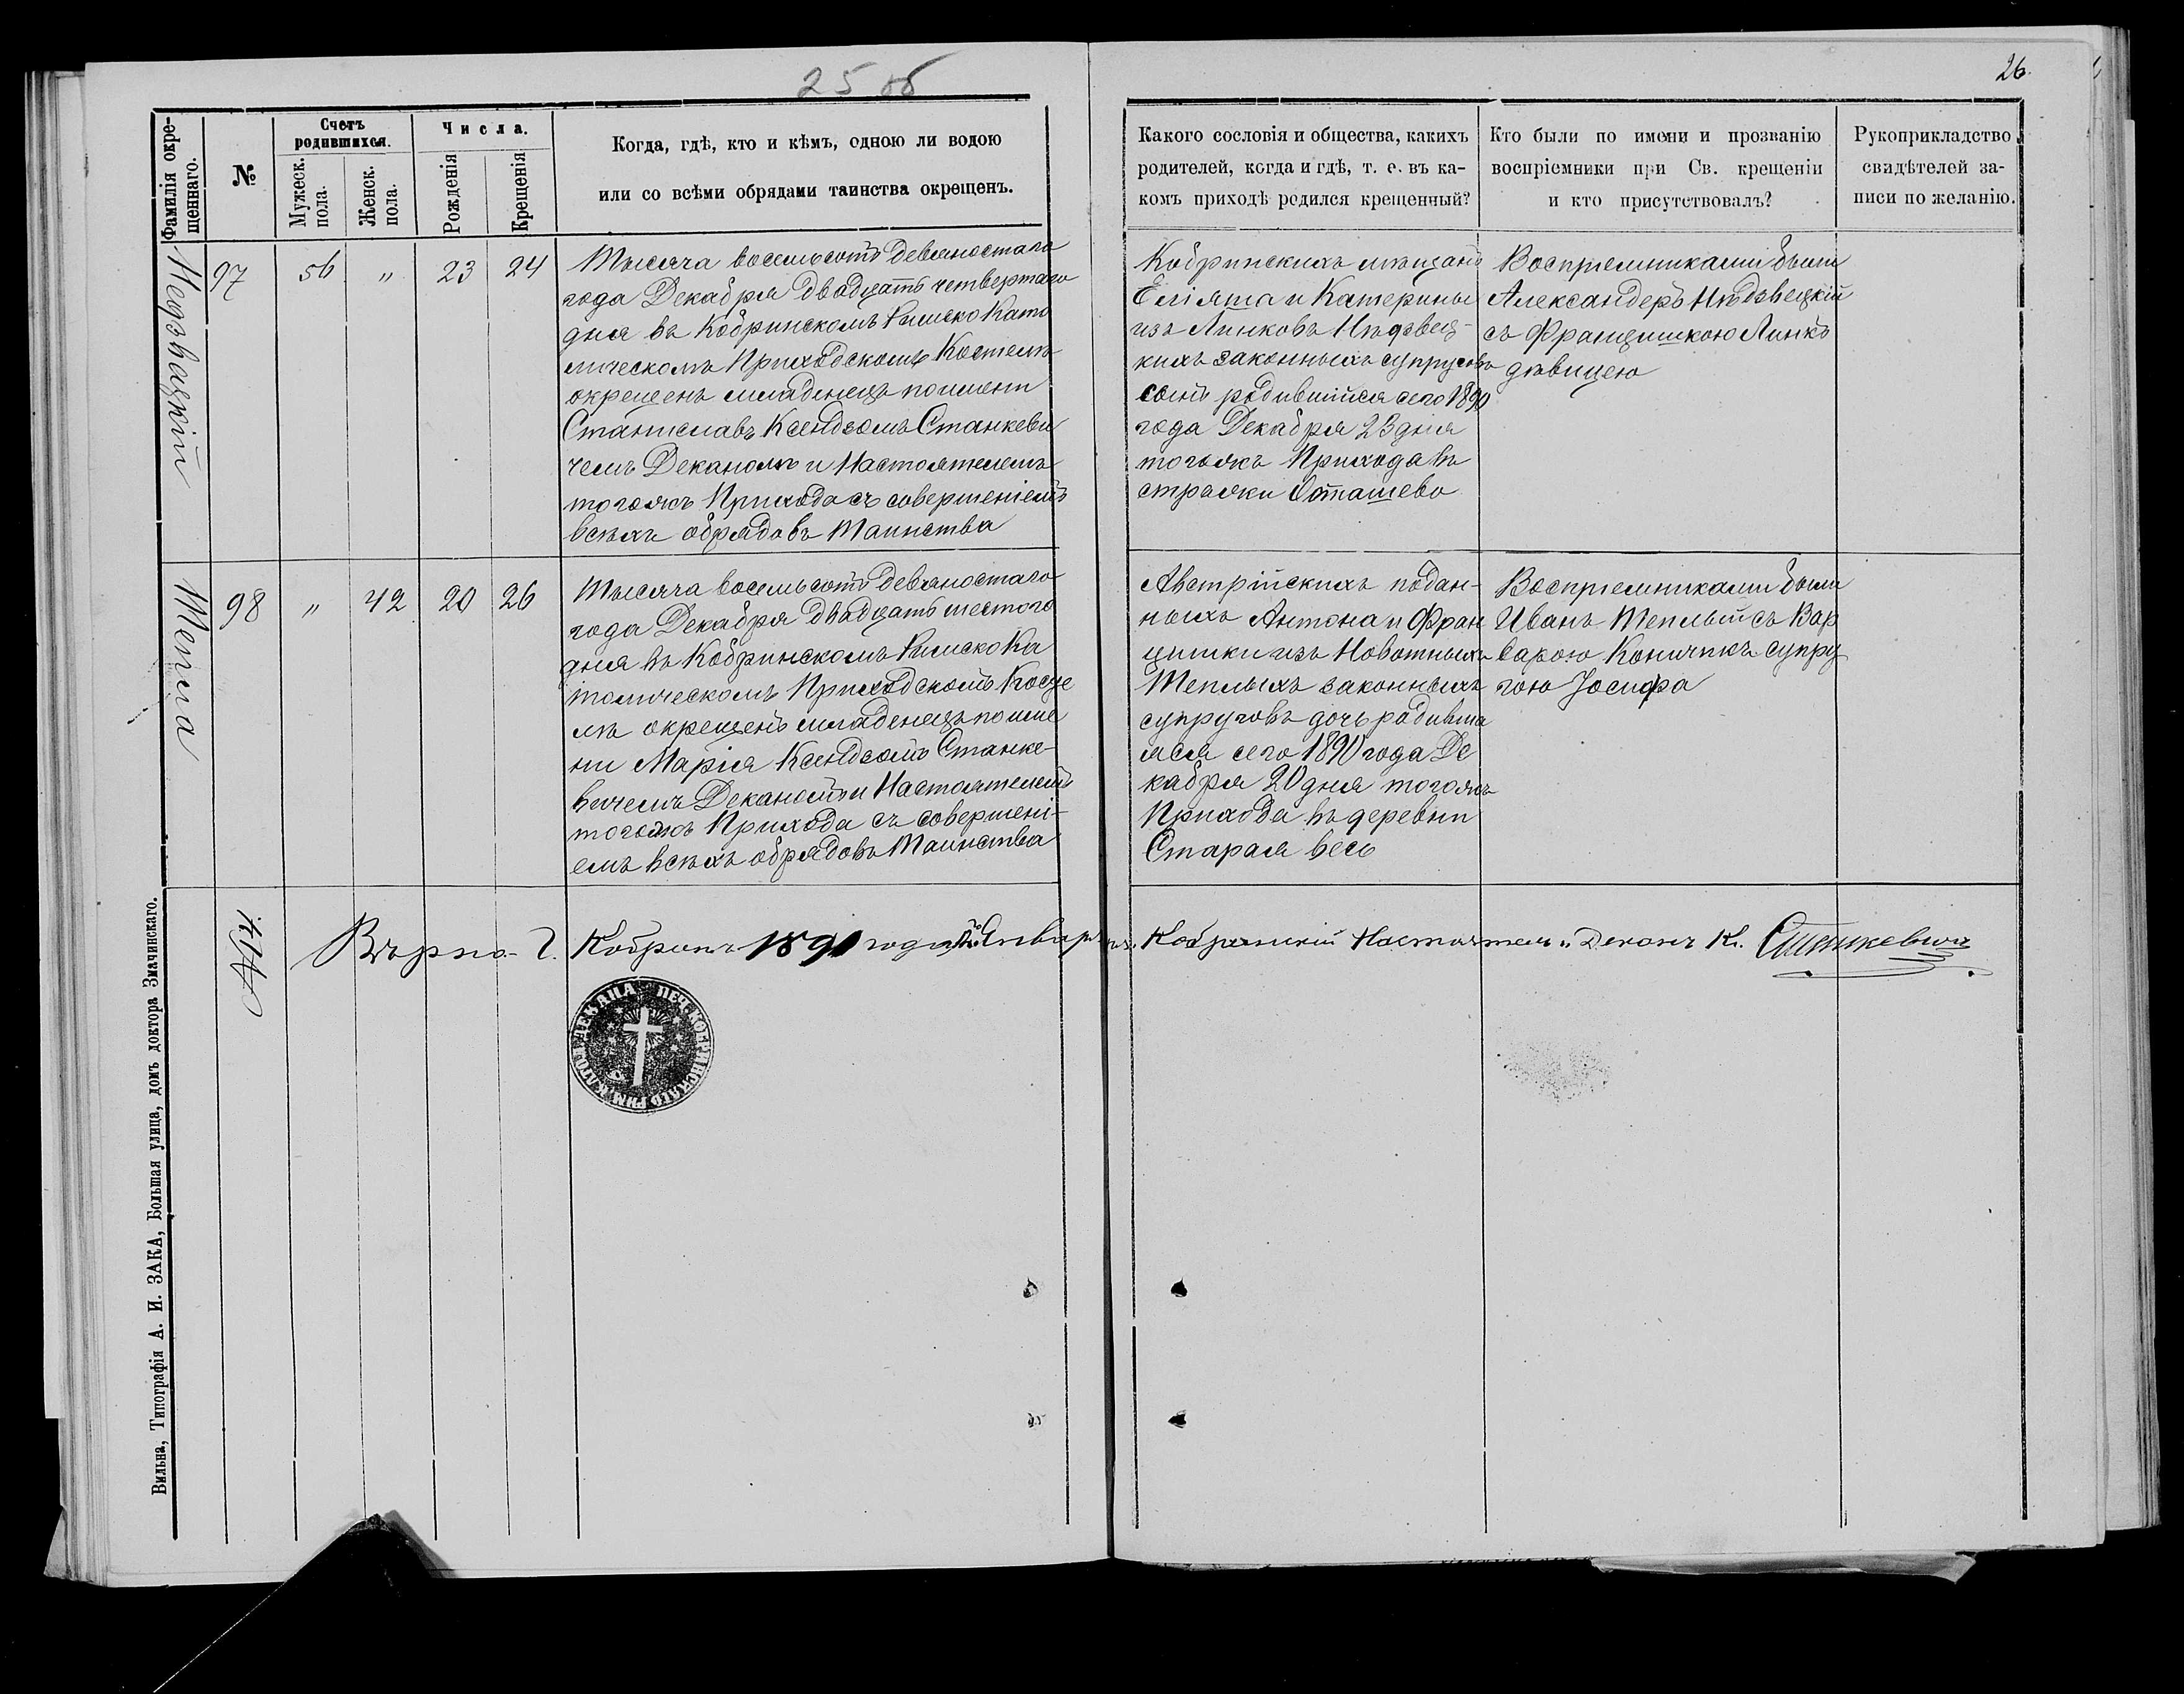 25 об
26.
Фамилія окре-
щеннаго.
№
Счетъ
родившихся.
Мужеск.
пола.
Женск.
пола.
Числа.
Рожденія
Крещенія
Когда, гдѣ, кто и кѣмъ, одною ли водою
или со всѣми обрядами таинства окрещенъ.
Какого сословія и общества, какихъ
родителей, когда и гдѣ, т. е. въ ка-
комъ приходѣ родился крещенный?
Кто были по имени и прозванію
воспріемники при Св. крещеніи
и кто присутствовалъ?
Рукоприкладство
свидѣтелей за-
писи по желанію.
97
56
"
23
24
Тысяча восемьсотъ девяностаго
года Декабря двадцать четвертаго
дня въ Кобринскомъ Римско Като
лическомъ Приходскомъ Костелѣ
окрещенъ младенецъ поимени
Станиславъ Ксендзомъ Станкеви
чемъ Деканомъ и Настоятелемъ
тогожъ Прихода съ совершеніемъ
всѣхъ обрядовъ Таинства
Кобринскихъ мѣщанъ
и Катерины
изъ Линковъ Нѣдзвец-
кихъ законныхъ супруговъ
сынъ родившійся сего 1890
года Декабря 23 дня
тогожъ Прихода въ
Воспріемниками были
Александеръ Нѣдзвецкій
съ Францишкою Линкъ
дѣвицею
98
"
42
20
26
Тысяча восемьсотъ девяностаго
года Декабря двадцать шестого
дня въ Кобринскомъ Римско Ка
толическомъ Приходскомъ Косце
лѣ окрещенъ младенецъ по име
ни Марія Ксендзомъ Станке-
вичемъ Деканомъ и Настоятелемъ
тогожъ Прихода съ совершені-
емъ всѣхъ обрядовъ Таинства
Австрійскихъ подан-
ныхъ Антона и Фран
цишки изъ Новотныхъ
Теплыхъ законныхъ
супруговъ дочь родивша
яся сего 1890 года Де
кабря 20 дня тогожъ
Прихода въ деревни
Старая весь
Воспріемниками были
Иванъ Теплый съ Вар
варою супру
гою Іосифа
Вѣрно. Г. Кобринъ 1891 года Января Кобринскій Настоятель и Деканъ Кс. Станкевичъ
Вильна, Типографія А. И. ЗАКА, Большая улица, домъ доктора Змачинскаго.